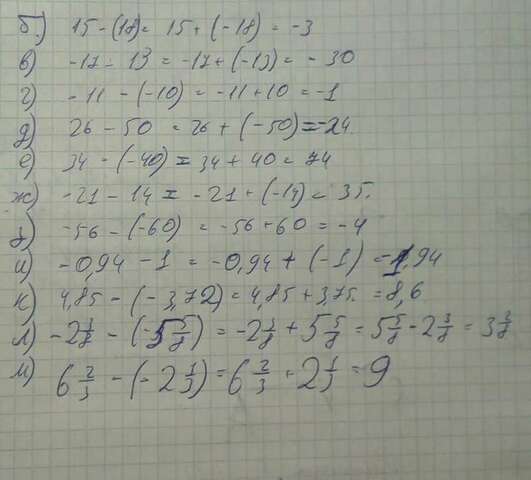 б.) 15 - (18) = 15 + (-18) = -3
в) -17 - 13 = -17 + (-13) = -30
г) -11 - (-10) = -11 + 10 = -1
д) 26 - 50 = 26 + (-50) = -24.
е) 34 - (-40) = 34 + 40 = 74
ж) -21 - 14 = -21 + (-14) = 35.
з) -56 - (-60) = -56 + 60 = -4
и) -0,94 - 1 = -0,94 + (-1) = -1,94
к) 4,85 - (-3,72) = 4,85 + 3,75. = 8,6
л) -2 3/8 - (-5 5/8) = -2 3/8 + 5 5/8 = 5 5/8 - 2 3/8 = 3 2/8
м) 6 2/3 - (-2 1/3) = 6 2/3 + 2 1/3 = 9